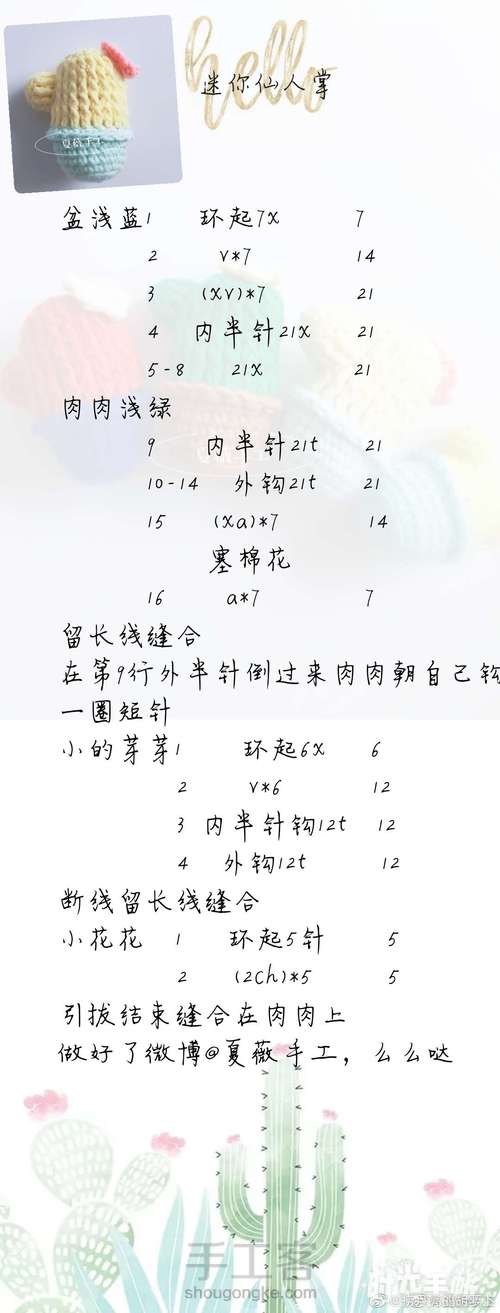 hello
迷你仙人掌
夏薇手工
盆浅蓝1 环起7x 7
2 v*7 14
3 (xv)*7 21
4 内半针21x 21
5-8 21x 21
肉肉浅绿
9 内半针21t 21
10-14 外钩21t 21
15 (xa)*7 14
塞棉花
16 a*7 7
留长线缝合
在第9行外半针倒过来肉肉朝自己钩
一圈短针
小的芽芽1 环起6x 6
2 v*6 12
3 内半针钩12t 12
4 外钩12t 12
断线留长线缝合
小花花 1 环起5针 5
2 (2ch)*5 5
引拔结束缝合在肉肉上
做好了微博@夏薇手工，么么哒
手工客
shougongke.com